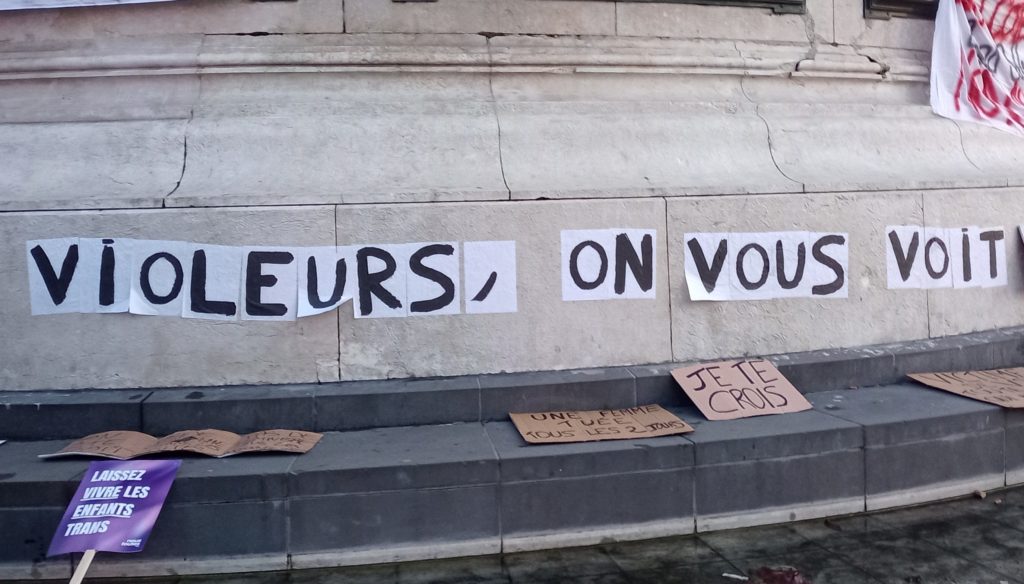 VIOLEURS, ON VOUS VOIT
JE TE
CROIS
UNE FEMME
TUÉE
TOUS LES 2 JOURS
LAISSEZ
VIVRE LES
ENFANTS
TRANS